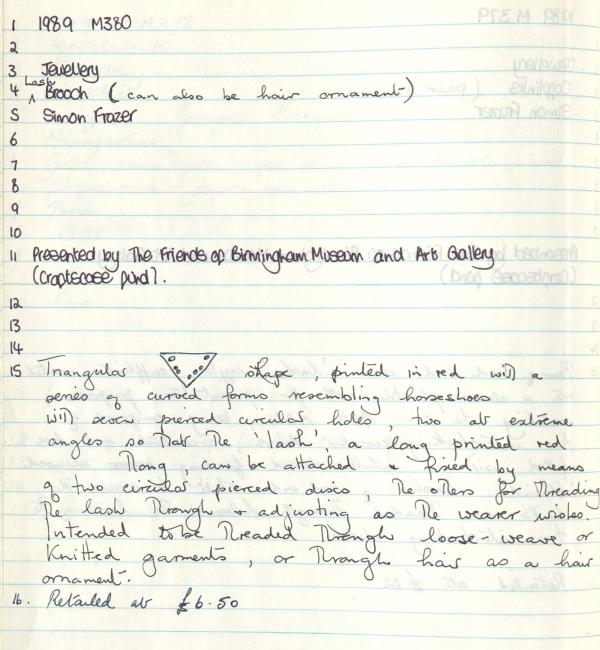 1 1989 M380
2
3 Jewellery
4 Lash Brooch (can also be hair ornament)
5 Simon Frazer
6
7
8
9
10
11 Presented by The Friends of Birmingham Museum and Art Gallery
(Craftscase fund).
12
13
14
15 Triangular shape, printed in red with a
series of curved forms resembling horseshoes
with seven pierced circular holes, two at extreme
angles so that the 'lash', a long printed red
thong, can be attached & fixed by means
of two circular pierced discs, the others for threading
the lash through & adjusting as the wearer wishes.
Intended to be threaded through loose-weave or
knitted garments, or through hair as a hair
ornament.
16. Retailed at £6.50